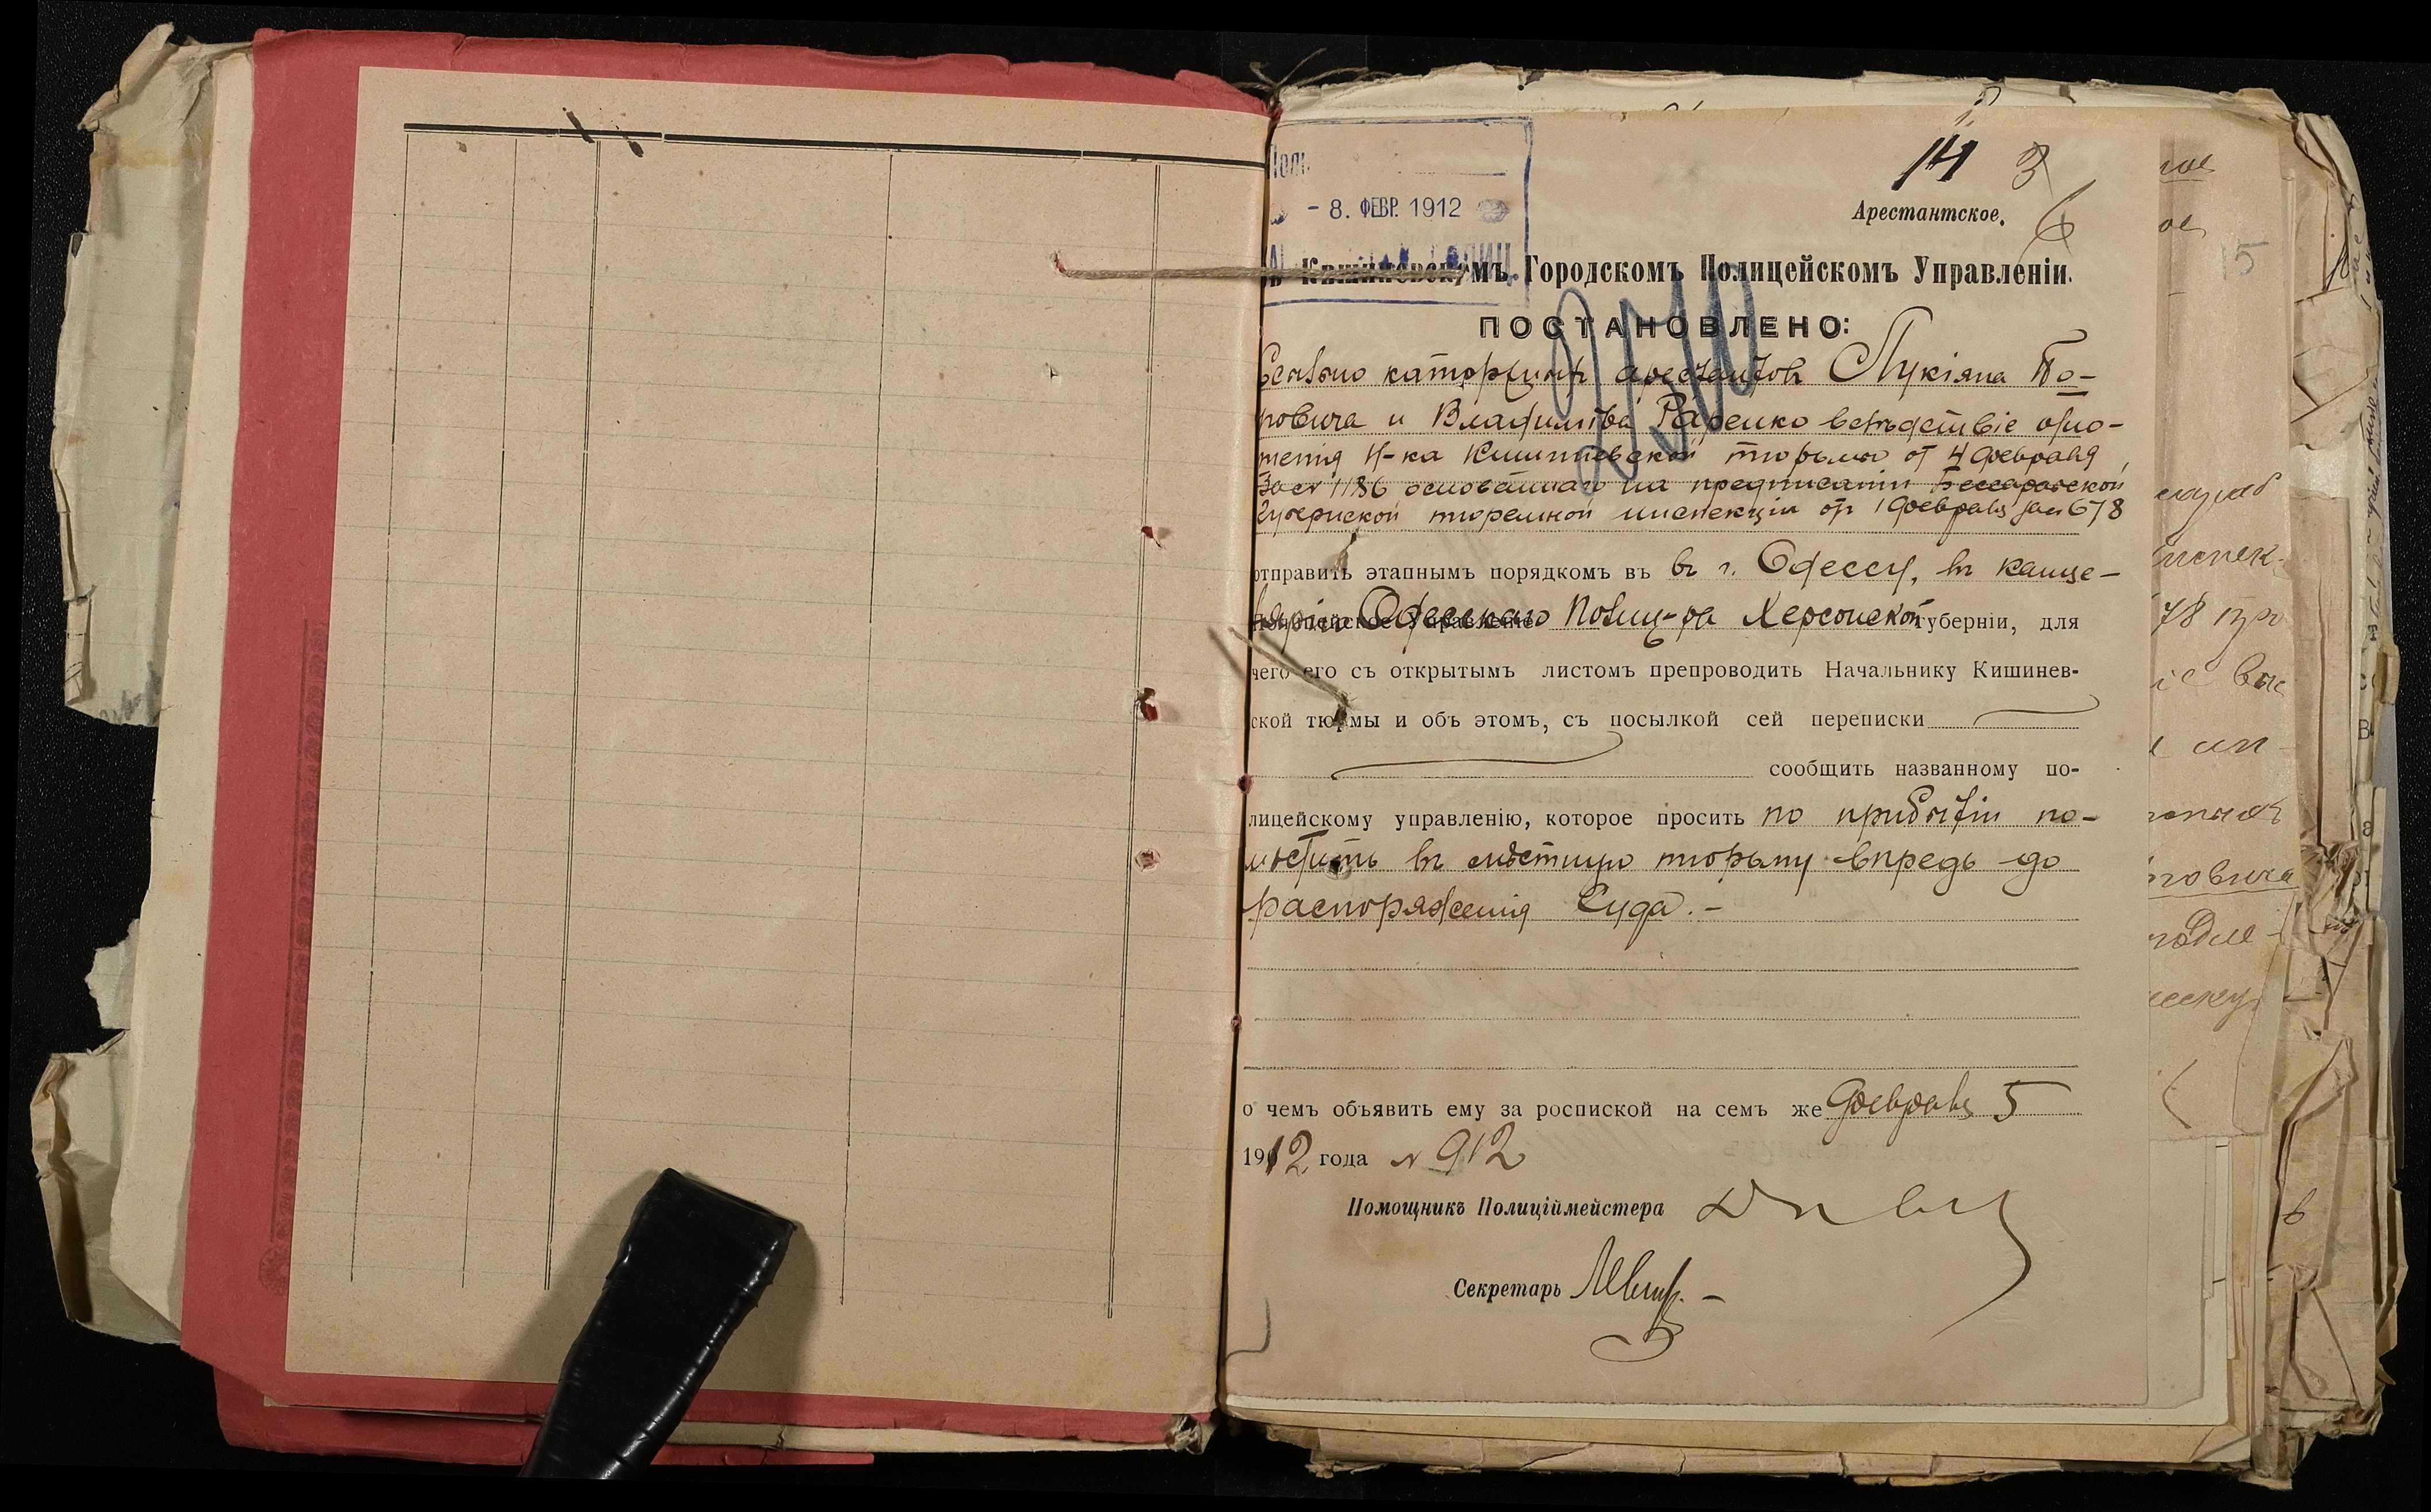 14 3
- 8. ФЕВР. 1912
Арестантское. 6
Кишиневскомъ Городскомъ Полицейскомъ Управленіи.
ПОСТАНОВЛЕНО:
каторжныхъ арестантовъ Лукіяна По-
повича и Владиміра вслѣдствіе отно-
шенія Н-ка Кишиневской тюрьмы от 4 февраля
за № 1186 основаннаго на предписаніи Бессарабской
Губернской тюремной инспекціи от 1 февраля за № 678
отправить этапнымъ порядкомъ въ въ г. Одессу, въ канце-
лярію Одесскаго Полиц-ра Херсонской губерніи, для
чего его съ открытымъ листомъ препроводить Начальнику Кишинев-
ской тюрьмы и объ этомъ, съ посылкой сей переписки
сообщить названному по-
лицейскому управленію, которое просить по прибытіи по-
мѣстить въ мѣстную тюрьму впредь до
распоряженія Суда. -
о чемъ объявить ему за роспиской на семъ же Февраля 5
1912 года № 912
Помощникъ Полиціймейстера
Секретарь
15